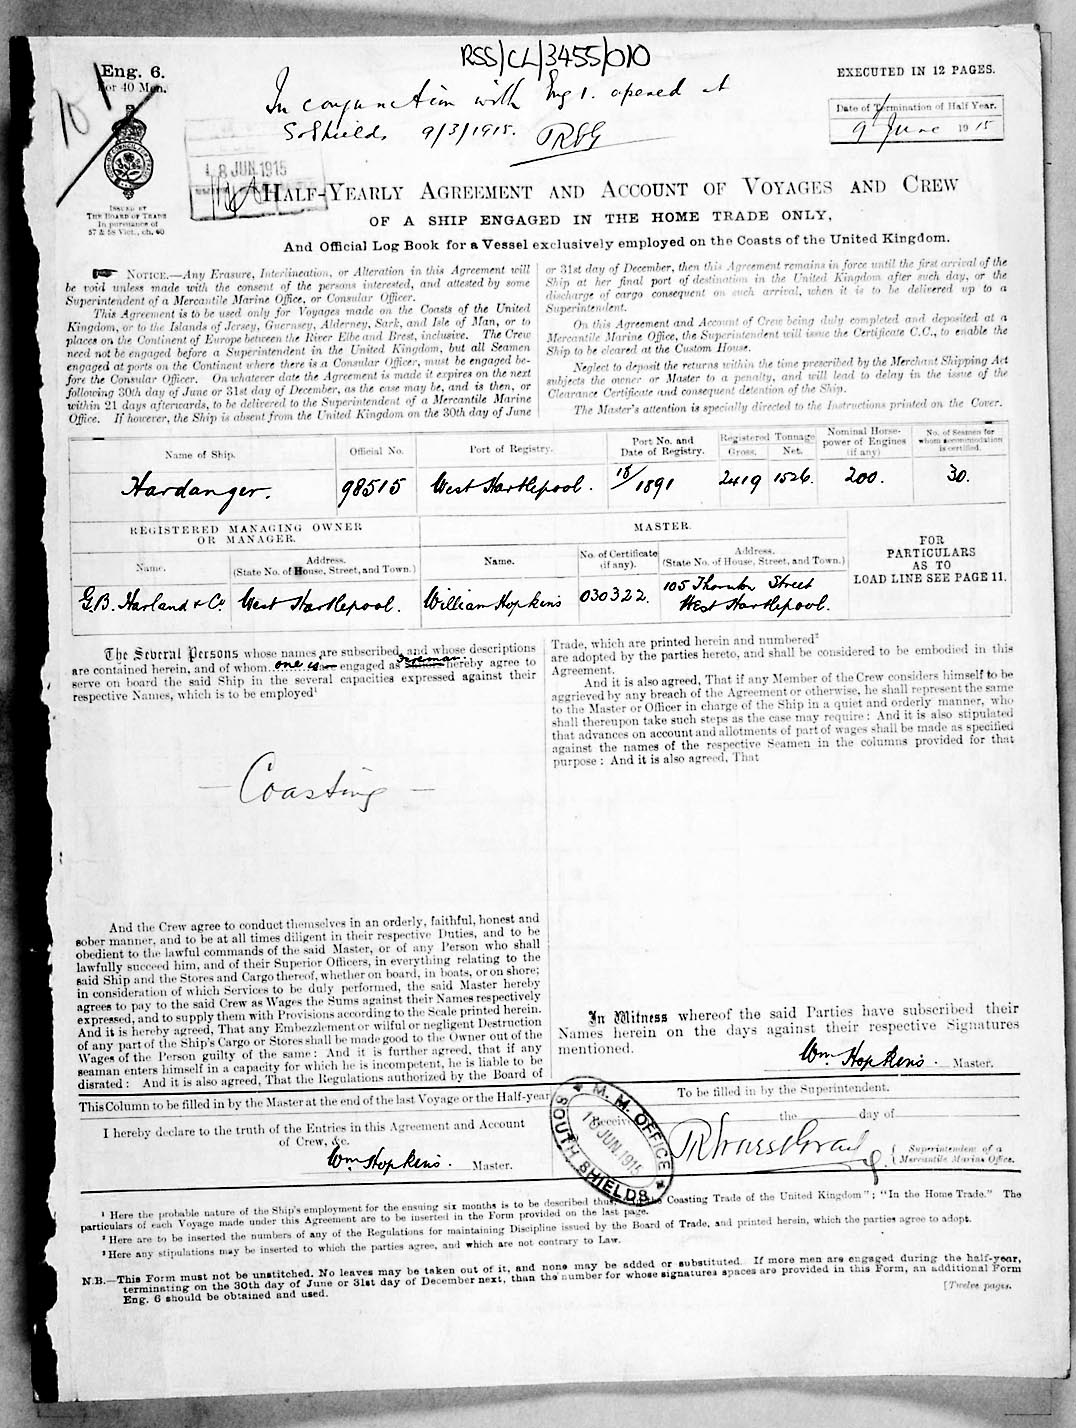 RSS/CL/3455/010
Eng. 6.
For 40 Men.
EXECUTED IN 12 PAGES.
In conjunction with Eng 1. opened at
S. Shields 9/3/1915.
Date of Termination of Half Year.
9th June 1915
18 JUN. 1915
ISSUED BY
THE BOARD OF TRADE
In pursuance of
57 & 58 Vict., ch. 60
HALF-YEARLY AGREEMENT AND ACCOUNT OF VOYAGES AND CREW
OF A SHIP ENGAGED IN THE HOME TRADE ONLY,
And Official Log Book for a Vessel exclusively employed on the Coasts of the United Kingdom.
NOTICE.—Any Erasure, Interlineation, or Alteration in this Agreement will
be void unless made with the consent of the persons interested, and attested by some
Superintendent of a Mercantile Marine Office, or Consular Officer.
This Agreement is to be used only for Voyages made on the Coasts of the United
Kingdom, or to the Islands of Jersey, Guernsey, Alderney, Sark, and Isle of Man, or to
places on the Continent of Europe between the River Elbe and Brest, inclusive. The Crew
need not be engaged before a Superintendent in the United Kingdom, but all Seamen
engaged at ports on the Continent where there is a Consular Officer, must be engaged be-
fore the Consular Officer. On whatever date the Agreement is made it expires on the next
following 30th day of June or 31st day of December, as the case may be, and is then, or
within 21 days afterwards, to be delivered to the Superintendent of a Mercantile Marine
Office. If however, the Ship is absent from the United Kingdom on the 30th day of June
or 31st day of December, then this Agreement remains in force until the first arrival of the
Ship at her final port of destination in the United Kingdom after such day, or the
discharge of cargo consequent on such arrival, when it is to be delivered up to a
Superintendent.
On this Agreement and Account of Crew being duly completed and deposited at a
Mercantile Marine Office, the Superintendent will issue the Certificate C.C., to enable the
Ship to be cleared at the Custom House.
Neglect to deposit the returns within the time prescribed by the Merchant Shipping Act
subjects the owner or Master to a penalty, and will lead to delay in the issue of the
Clearance Certificate and consequent detention of the Ship.
The Master's attention is specially directed to the Instructions printed on the Cover.
Name of Ship. Official No. Port of Registry. Port No. and Date of Registry. Registered Tonnage Gross. Net. Nominal Horse-power of Engines (if any) No. of Seamen for whom accommodation is certified.
Hardanger. 98515 West Hartlepool. 18/1891 2419 1526. 200. 30.
REGISTERED MANAGING OWNER OR MANAGER. MASTER.
Name. Address. (State No. of House, Street, and Town.) Name. No. of Certificate (if any). Address. (State No. of House, Street, and Town.)
FOR PARTICULARS AS TO LOAD LINE SEE PAGE 11.
G.B. Harland & Co West Hartlepool. William Hopkins 030322. 105 Thornton Street West Hartlepool.
The Several Persons whose names are subscribed, and whose descriptions
are contained herein, and of whom one is engaged as fireman hereby agree to
serve on board the said Ship in the several capacities expressed against their
respective Names, which is to be employed¹
— Coasting —
And the Crew agree to conduct themselves in an orderly, faithful, honest and
sober manner, and to be at all times diligent in their respective Duties, and to be
obedient to the lawful commands of the said Master, or of any Person who shall
lawfully succeed him, and of their Superior Officers, in everything relating to the
said Ship and the Stores and Cargo thereof, whether on board, in boats, or on shore;
in consideration of which Services to be duly performed, the said Master hereby
agrees to pay to the said Crew as Wages the Sums against their Names respectively
expressed, and to supply them with Provisions according to the Scale printed herein.
And it is hereby agreed, That any Embezzlement or wilful or negligent Destruction
of any part of the Ship's Cargo or Stores shall be made good to the Owner out of the
Wages of the Person guilty of the same: And it is further agreed, that if any
seaman enters himself in a capacity for which he is incompetent, he is liable to be
disrated: And it is also agreed, That the Regulations authorized by the Board of
Trade, which are printed herein and numbered²
are adopted by the parties hereto, and shall be considered to be embodied in this
Agreement.
And it is also agreed, That if any Member of the Crew considers himself to be
aggrieved by any breach of the Agreement or otherwise, he shall represent the same
to the Master or Officer in charge of the Ship in a quiet and orderly manner, who
shall thereupon take such steps as the case may require: And it is also stipulated
that advances on account and allotments of part of wages shall be made as specified
against the names of the respective Seamen in the columns provided for that
purpose: And it is also agreed, That
In Witness whereof the said Parties have subscribed their
Names herein on the days against their respective Signatures
mentioned.
Wm Hopkins. Master.
This Column to be filled in by the Master at the end of the last Voyage or the Half-year
I hereby declare to the truth of the Entries in this Agreement and Account
of Crew, &c.
Wm Hopkins. Master.
To be filled in by the Superintendent.
Received the day of
Superintendent of a
Mercantile Marine Office.
M. M. OFFICE
18 JUN. 1915
SOUTH SHIELDS
¹ Here the probable nature of the Ship's employment for the ensuing six months is to be described thus, Coasting Trade of the United Kingdom"; "In the Home Trade." The
particulars of each Voyage made under this Agreement are to be inserted in the Form provided on the last page.
² Here are to be inserted the numbers of any of the Regulations for maintaining Discipline issued by the Board of Trade, and printed herein, which the parties agree to adopt.
³ Here any stipulations may be inserted to which the parties agree, and which are not contrary to Law.
N.B.—This Form must not be unstitched. No leaves may be taken out of it, and none may be added or substituted. If more men are engaged during the half-year,
terminating on the 30th day of June or 31st day of December next, than the number for whose signatures spaces are provided in this Form, an additional Form
Eng. 6 should be obtained and used.
[Twelve pages.